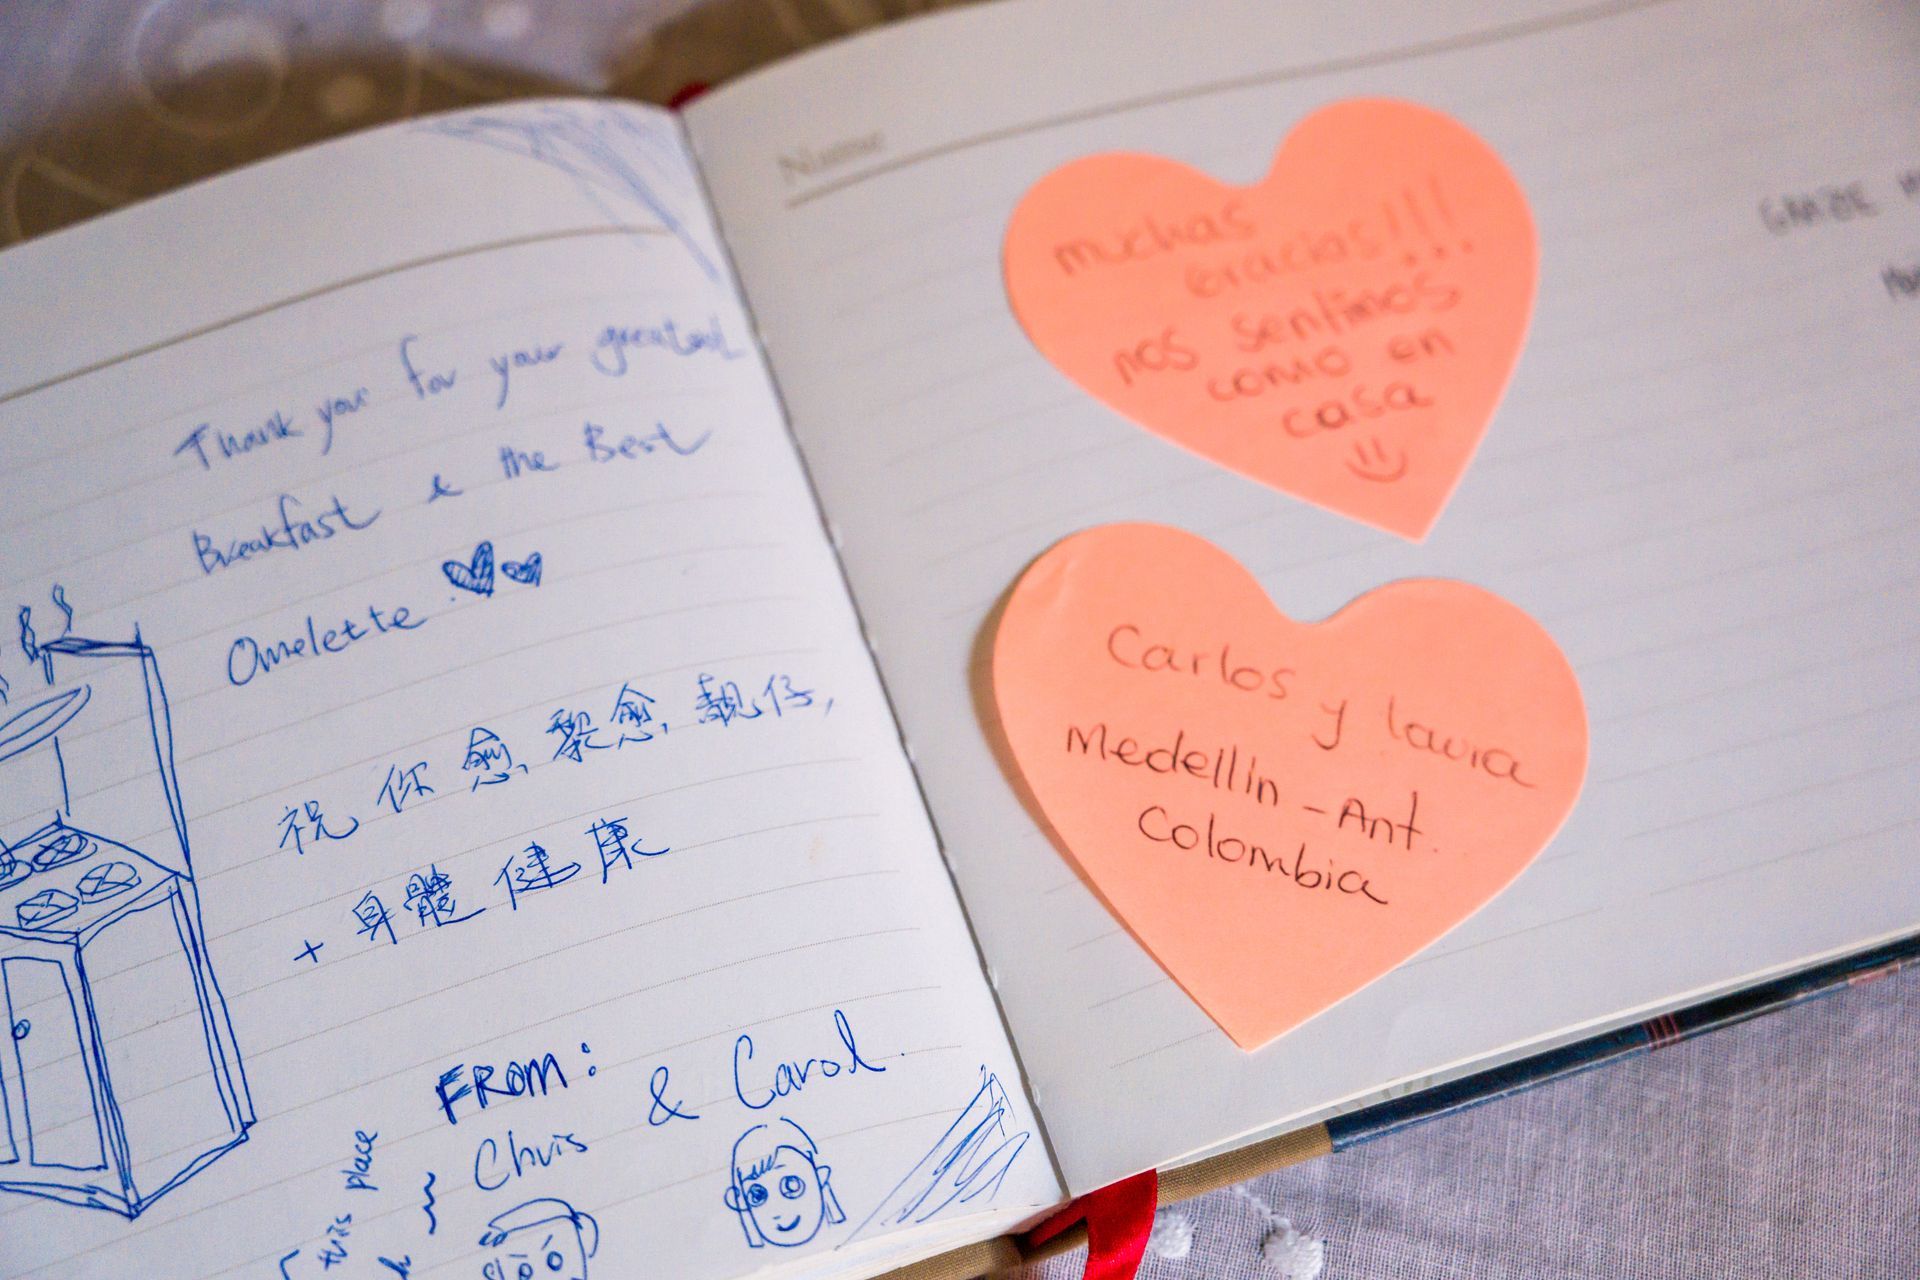 Thank you for your
Breakfast & the Best
Omelette
祝你愈黎愈靚仔,
+身體健康
FROM:
Chris & Carol.
this place
Name
muchas
Gracias!!!
nos sentimos
como en
casa
Carlos y Laura
Medellin - Ant.
Colombia
GRAZIE